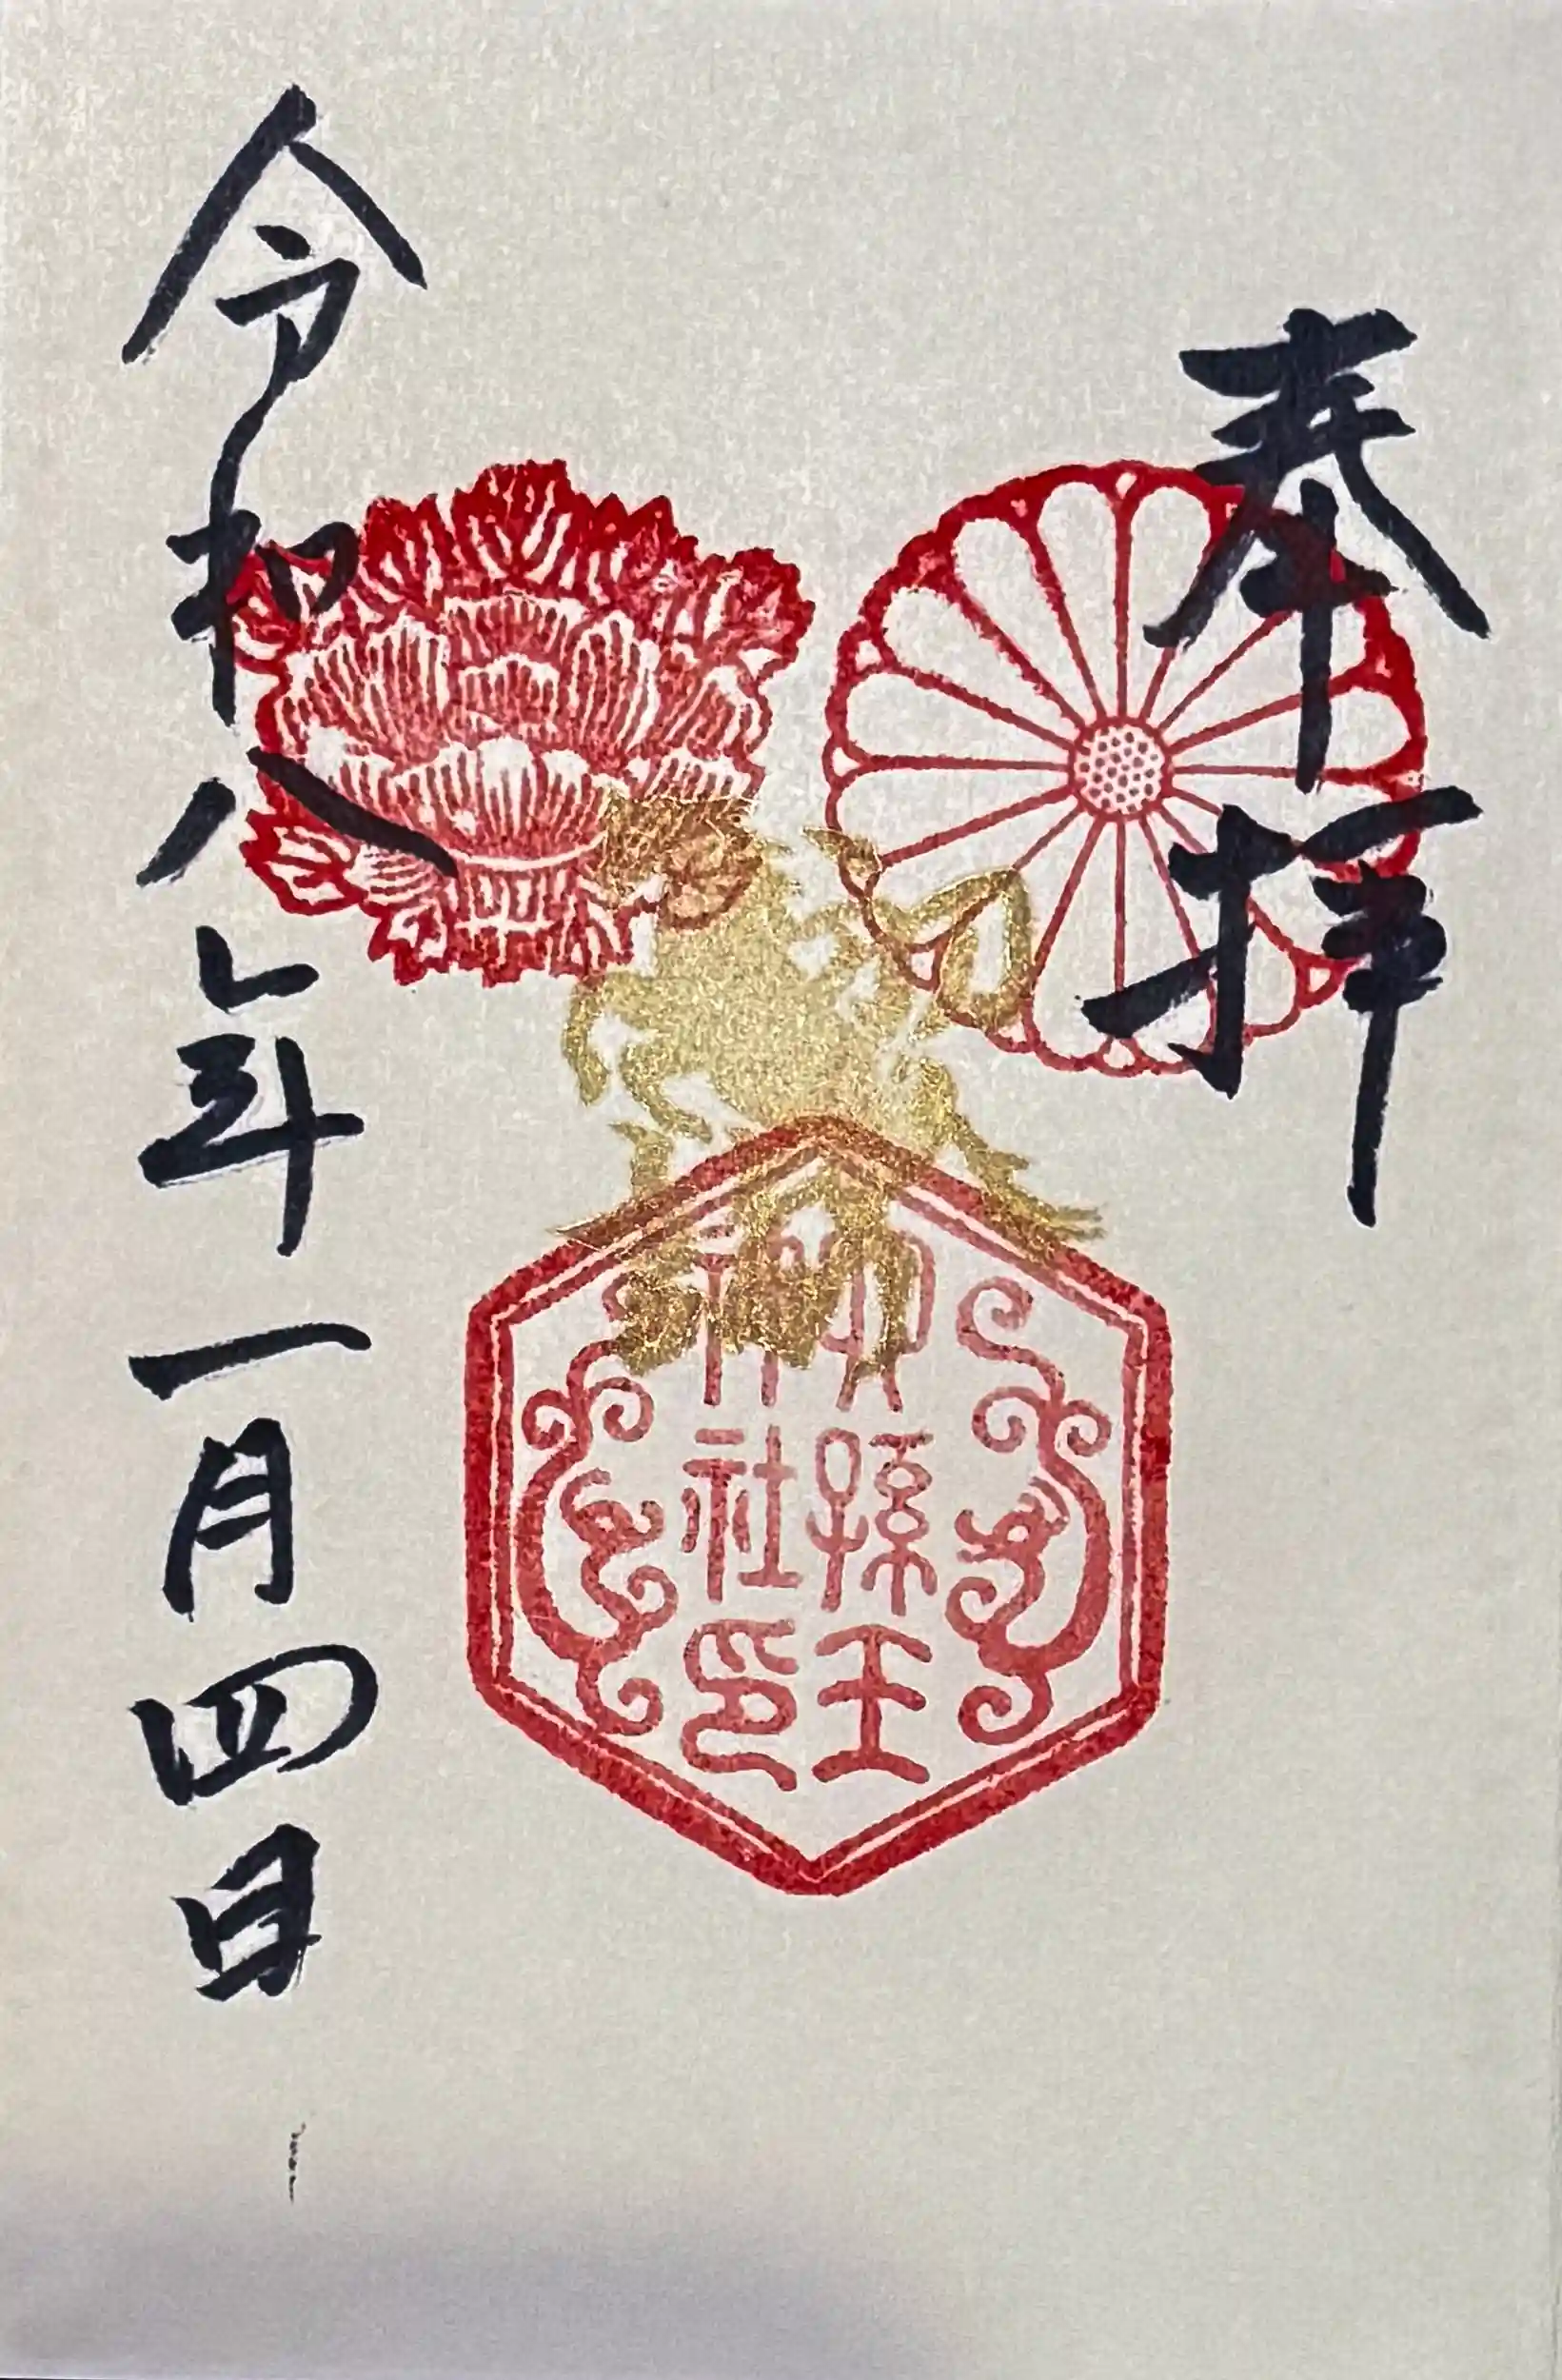 奉拝
六孫王
神社印
令和八年一月四日